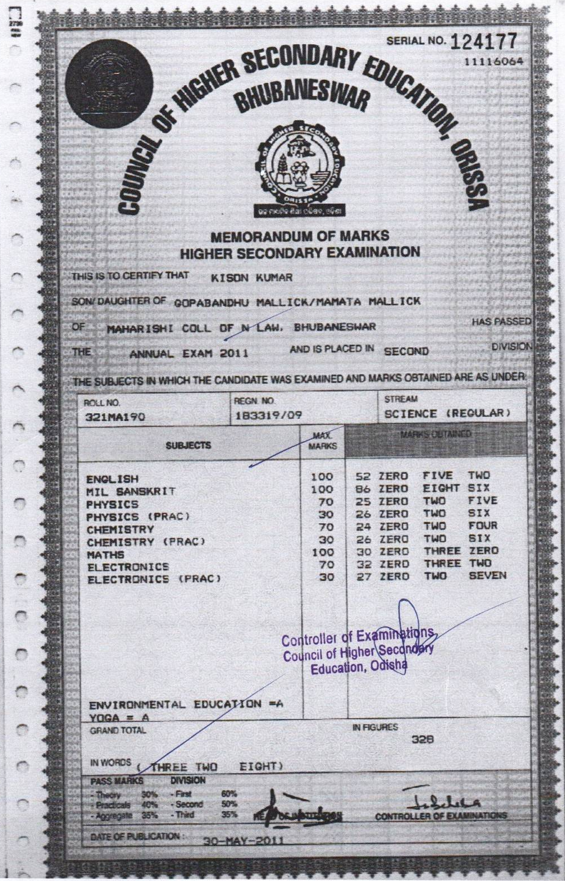 SERIAL NO. 124177
11116064
COUNCIL OF HIGHER SECONDARY EDUCATION, ORISSA
BHUBANESWAR
MEMORANDUM OF MARKS
HIGHER SECONDARY EXAMINATION
THIS IS TO CERTIFY THAT KISON KUMAR
SON/DAUGHTER OF GOPABANDHU MALLICK/MAMATA MALLICK
OF MAHARISHI COLL OF N LAW, BHUBANESWAR HAS PASSED
THE ANNUAL EXAM 2011 AND IS PLACED IN SECOND DIVISION
THE SUBJECTS IN WHICH THE CANDIDATE WAS EXAMINED AND MARKS OBTAINED ARE AS UNDER
ROLL NO. REGN. NO. STREAM
321MA190 183319/09 SCIENCE (REGULAR)
SUBJECTS MAX. MARKS MARKS OBTAINED
ENGLISH 100 52 ZERO FIVE TWO
MIL SANSKRIT 100 86 ZERO EIGHT SIX
PHYSICS 70 25 ZERO TWO FIVE
PHYSICS (PRAC) 30 26 ZERO TWO SIX
CHEMISTRY 70 24 ZERO TWO FOUR
CHEMISTRY (PRAC) 30 26 ZERO TWO SIX
MATHS 100 30 ZERO THREE ZERO
ELECTRONICS 70 32 ZERO THREE TWO
ELECTRONICS (PRAC) 30 27 ZERO TWO SEVEN
Controller of Examinations
Council of Higher Secondary
Education, Odisha
ENVIRONMENTAL EDUCATION =A
YOGA = A
GRAND TOTAL IN FIGURES
328
IN WORDS ( THREE TWO EIGHT)
PASS MARKS DIVISION
- Theory 30% - First 60%
- Practicals 40% - Second 50%
- Aggregate 35% - Third 35% CONTROLLER OF EXAMINATIONS
DATE OF PUBLICATION : 30-MAY-2011